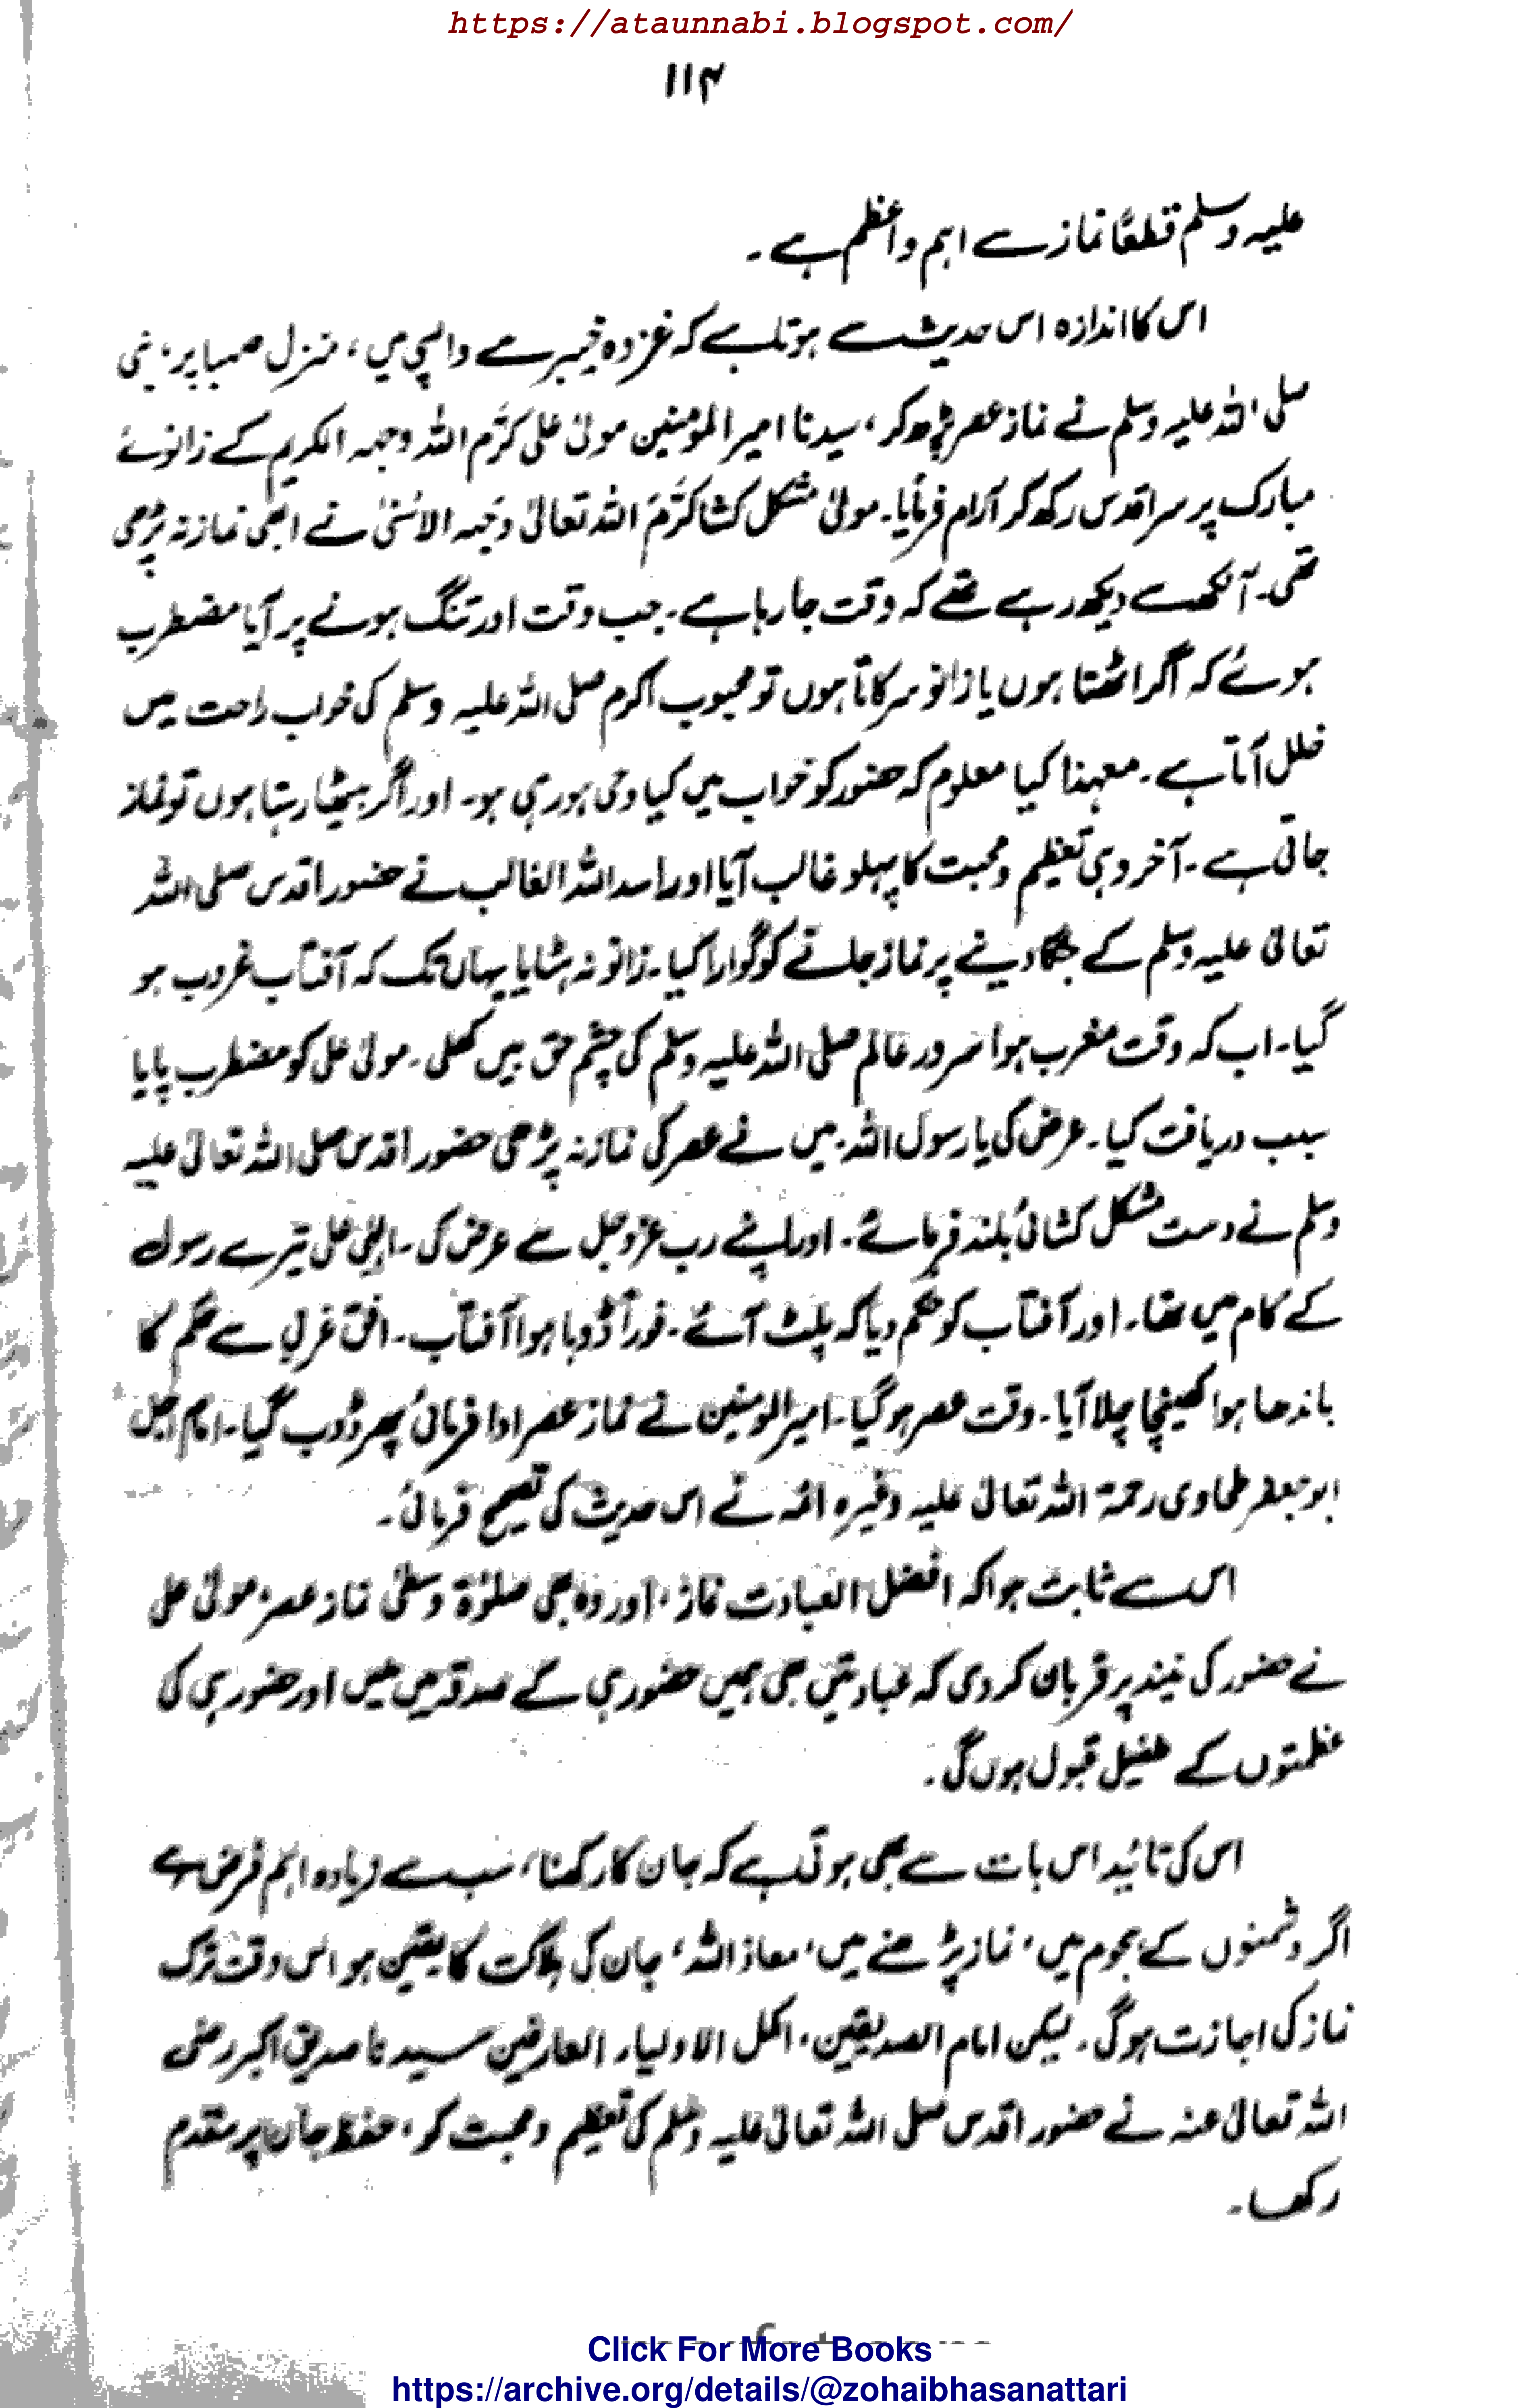 https://ataunnabi.blogspot.com/
۱۱۴
علیہ وسلم قطعًا نماز سے اہم و اعظم ہے۔
اس کا اندازہ اس حدیث سے ہوتا ہے کہ غزوہ خیبر سے واپسی میں، منزل صہبا پر، نبی
صلی اللہ علیہ وسلم نے نماز عصر پڑھ کر، سیدنا امیر المؤمنین مولیٰ علی کرَّم اللہ وجہہ الکریم کے زانوئے
مبارک پر سر اقدس رکھ کر آرام فرمایا۔ مولیٰ مشکل کشا کَرَّمَ اللہ تعالیٰ وَجہہ الاَسنیٰ نے ابھی نماز نہ پڑھی
تھی۔ آنکھ سے دیکھ رہے تھے کہ وقت جا رہا ہے۔ جب وقت اور تنگ ہونے پر آیا مضطرب
ہوئے کہ اگر اٹھتا ہوں یا زانو سرکاتا ہوں تو محبوب اکرم صلی اللہ علیہ وسلم کی خواب راحت میں
خلل آتا ہے۔ معہٰذا کیا معلوم کہ حضور کو خواب میں کیا وحی ہو رہی ہو۔ اور اگر بیٹھا رہتا ہوں تو نماز
جاتی ہے۔ آخر وہی تعظیم و محبت کا پہلو غالب آیا اور اسد اللہ الغالب نے حضور اقدس صلی اللہ
تعالیٰ علیہ وسلم کے جگا دینے پر نماز جانے کو گوارا کیا۔ زانو نہ ہٹایا یہاں تک کہ آفتاب غروب ہو
گیا۔ اب کہ وقت مغرب ہوا سرور عالم صلی اللہ علیہ وسلم کی چشم حق بیں کھلی۔ مولیٰ علی کو مضطرب پایا
سبب دریافت کیا۔ عرض کی یا رسول اللہ۔ میں نے عصر کی نماز نہ پڑھی حضور اقدس صلی اللہ تعالیٰ علیہ
وسلم نے دست مشکل کشائی بلند فرمائے۔ اور اپنے رب عز و جل سے عرض کی۔ الٰہی علی تیرے رسول
کے کام میں تھا۔ اور آفتاب کو حکم دیا کہ پلٹ آئے۔ فوراً ڈوبا ہوا آفتاب۔ افق غربی سے حکم کا
باندھا ہوا کھینچا چلا آیا۔ وقت عصر ہو گیا۔ امیر المومنین نے نماز عصر ادا فرمائی پھر ڈوب گیا۔ امام اجل
ابو جعفر طحاوی رحمۃ اللہ تعالیٰ علیہ وغیرہ ائمہ نے اس حدیث کی تصحیح فرمائی۔
اس سے ثابت ہوا کہ افضل العبادت نماز، اور وہ بھی صلوٰۃ وسطیٰ نماز عصر، مولیٰ علی
نے حضور کی نیند پر قربان کر دی کہ عبادتیں بھی ہمیں حضور ہی کے صدقہ میں ملیں اور حضور ہی کی
عظمتوں کے طفیل قبول ہوں گی۔
اس کی تائید اس بات سے بھی ہوتی ہے کہ جان کا رکھنا، سب سے زیادہ اہم فرض ہے
اگر دشمنوں کے ہجوم میں، نماز پڑھنے میں، معاذ اللہ، جان کی ہلاکت کا یقین ہو اس وقت ترک
نماز کی اجازت ہو گی۔ لیکن امام الصدیقین، اکمل الاولیاء العارفین سیدنا صدیق اکبر رضی
اللہ تعالیٰ عنہ نے حضور اقدس صلی اللہ تعالیٰ علیہ وسلم کی تعظیم و محبت کو، حفظ جان پر مقدم
رکھا۔
Click For More Books
https://archive.org/details/@zohaibhasanattari